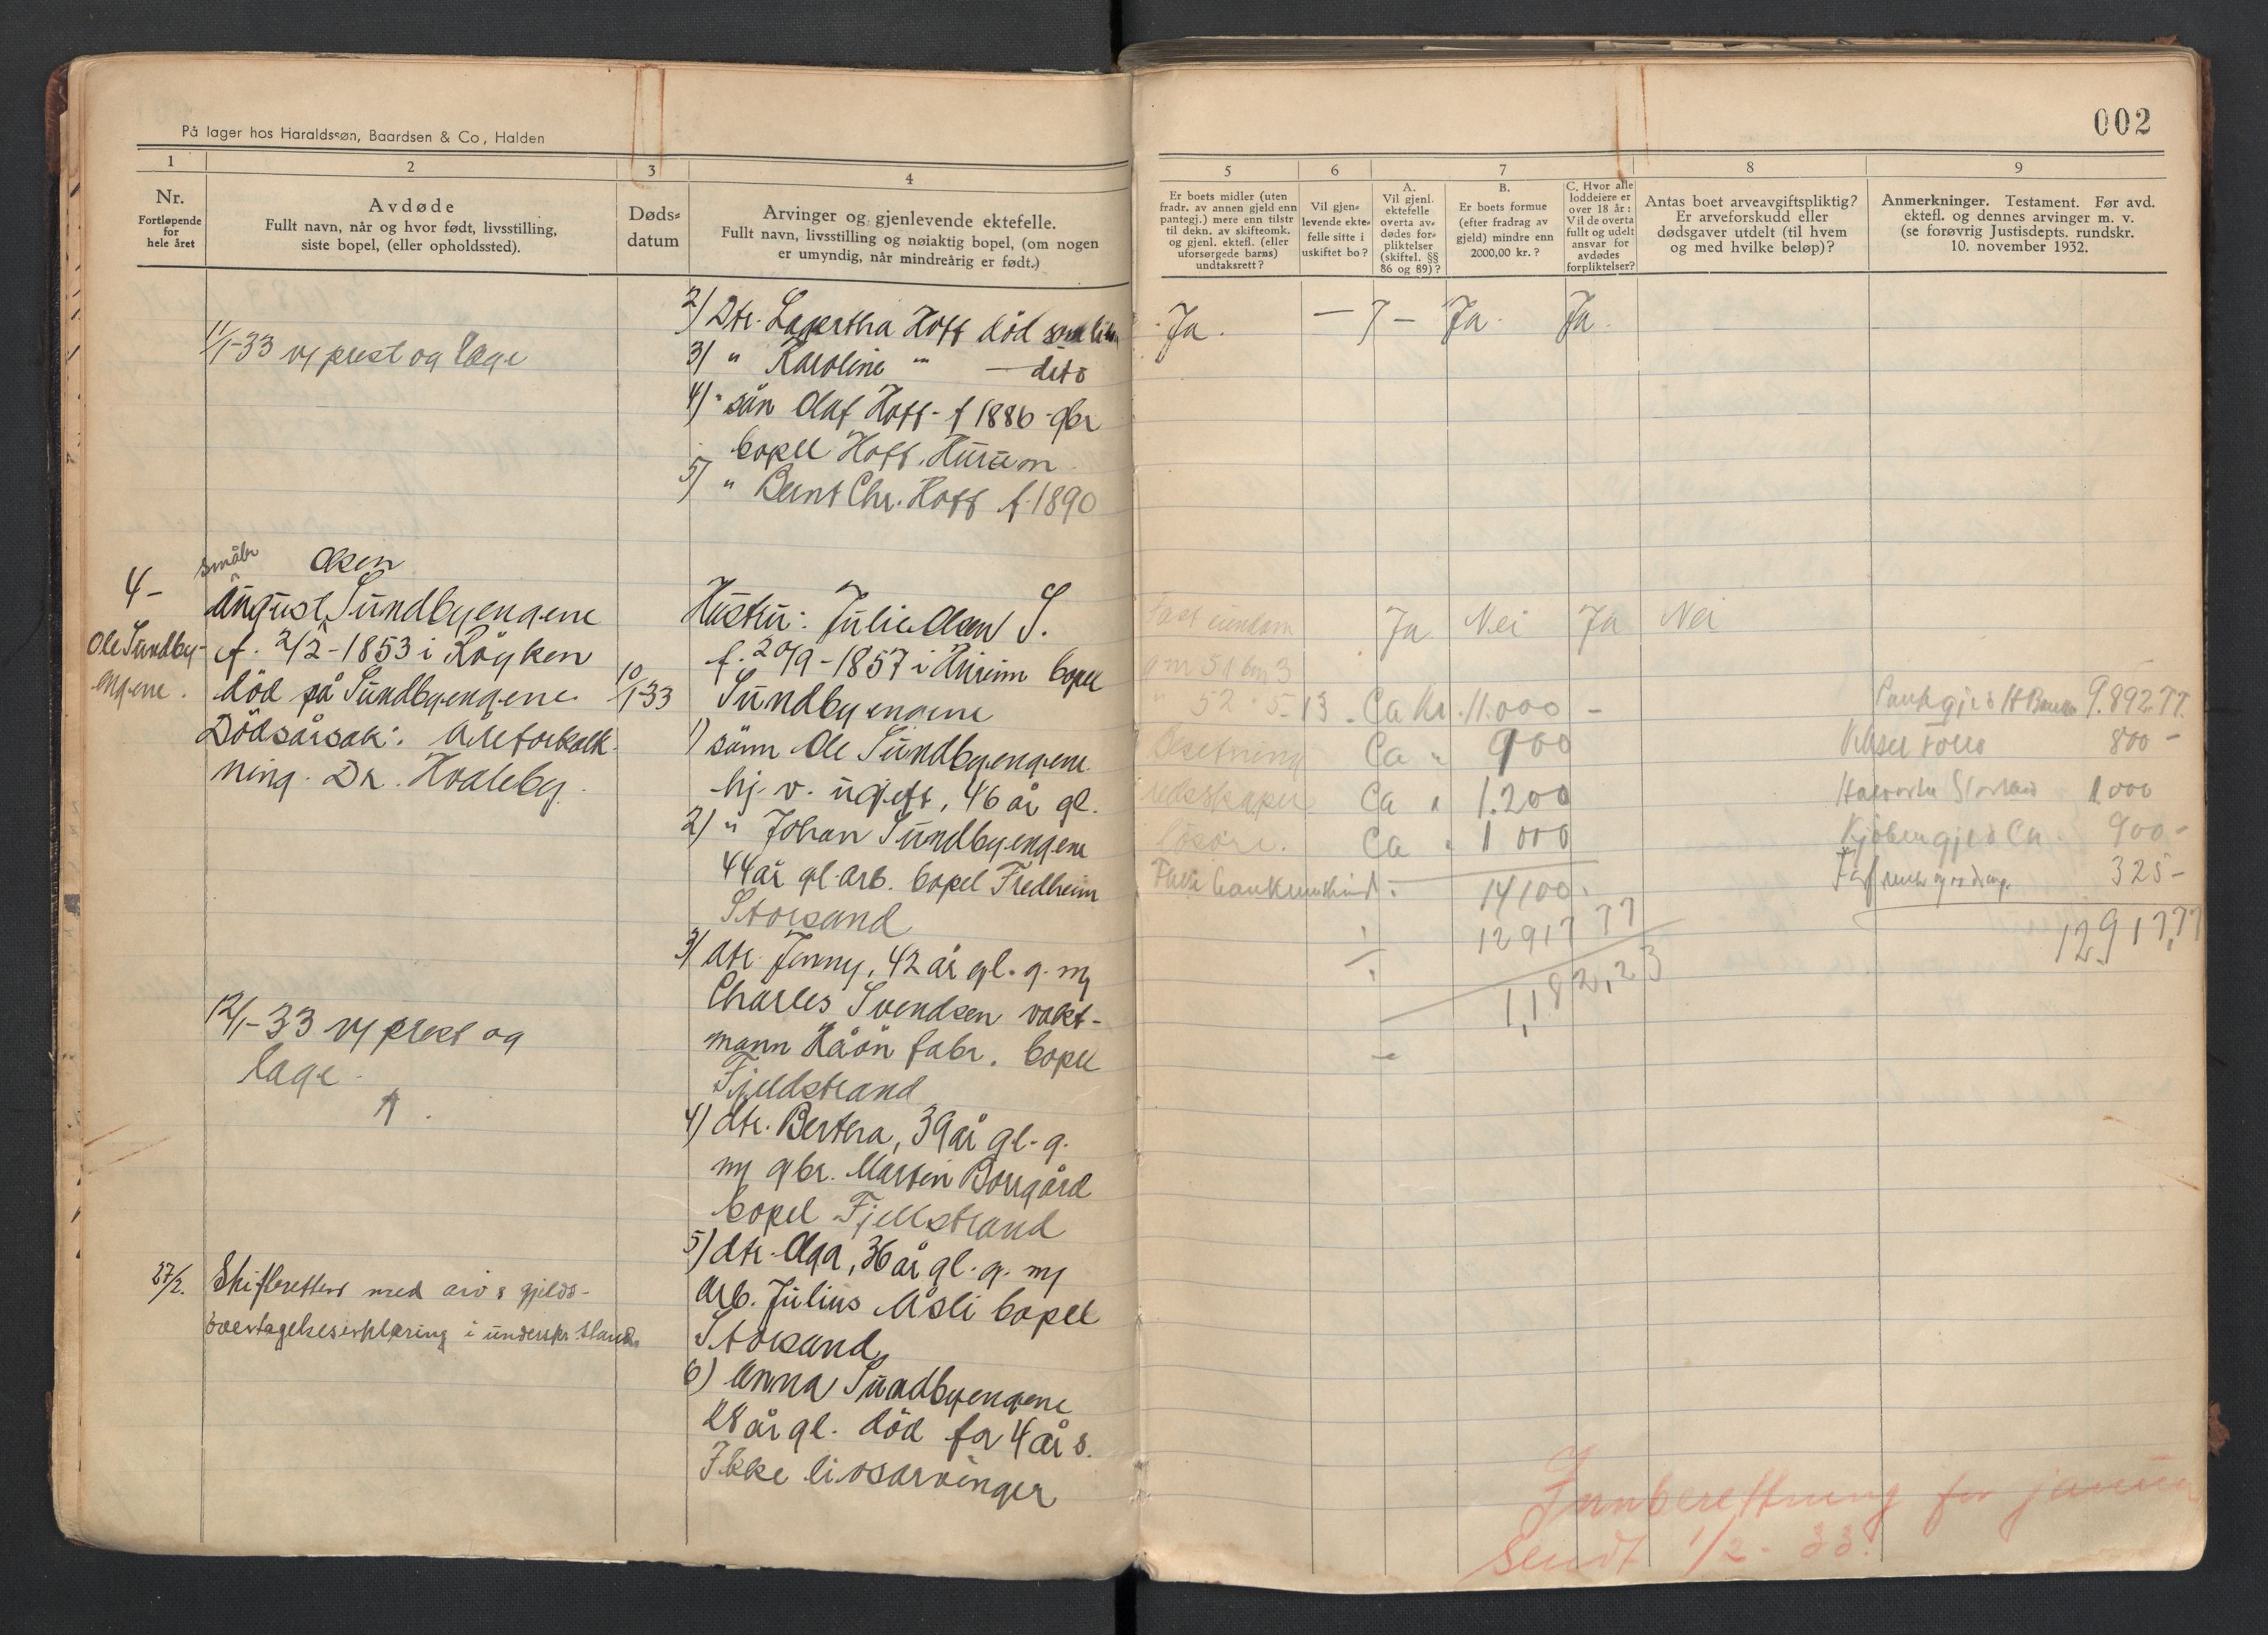 På lager hos Haraldssøn, Baardsen & Co, Halden
1
Nr.
Fortløpende
for
hele året
2
Avdøde
Fullt navn, når og hvor født, livsstilling,
siste bopel, (eller opholdssted).
3
Døds-
datum
4
Arvinger og gjenlevende ektefelle.
Fullt navn, livsstilling og nøiaktig bopel, (om nogen
er umyndig, når mindreårig er født.)
11/1-33 m/ prest og læge
2) Dtr. Lagertha Hoff död som liten
3) " Karoline " — dito
4) " sön Olaf Hoff - f 1886 - gbr
bopel Hoff, Hurum
5) " Bernt Chr. Hoff f. 1890
4-
Ole Sundby-
engene.
småbr
Olsen
August Sundbyengene
f. 2/2-1853 i Röyken
död på Sundbyengene
Dödsårsak: Areforkalk-
ning. Dr. Hvaleby.
10/1-33
12/1-33 m/ prest og
læge.
27/2. Skifteretten med arv & gjelds-
overtagelseserklæring i underskr. stand.
Hustru: Julie Olsen S.
f. 20/9-1857 i Hurum bopel
Sundbyengene
1) sönn Ole Sundbyengene
hj. v. ugift, 46 år gl.
2) " Johan Sundbyengene
44 år gl. arb. bopel Fredheim
Storsand
3) dtr. Jenny, 42 år gl. g. m/
Charles Svendsen vakt-
mann Håön fabr. bopel
Fjeldstrand
4) dtr. Bertha, 39 år gl. g.
m/ gbr. Martin Borgård
bopel Fjellstrand
5) dtr. Olga, 36 år gl. g. m/
Arb. Julius Åsli bopel
Storsand
6) Anna Sundbyengene
28 år gl. död for 4 år s.
Ikke livsarvinger
002
5
Er boets midler (uten
fradr. av annen gjeld enn
pantegj.) mere enn tilstr
til dekn. av skifteomk.
og gjenl. ektefl. (eller
uforsørgede barns)
undtaksrett?
6
Vil gjen-
levende ekte-
felle sitte i
uskiftet bo?
7
A.
Vil gjenl.
ektefelle
overta av-
dødes for-
pliktelser
(skiftel. §§
86 og 89)?
B.
Er boets formue
(efter fradrag av
gjeld) mindre enn
2000,00 kr.?
C. Hvor alle
loddeiere er
over 18 år:
Vil de overta
fullt og udelt
ansvar for
avdødes
forpliktelser?
8
Antas boet arveavgiftspliktig?
Er arveforskudd eller
dødsgaver utdelt (til hvem
og med hvilke beløp)?
9
Anmerkninger. Testament. Før avd.
ektefl. og dennes arvinger m. v.
(se forøvrig Justisdepts. rundskr.
10. november 1932.
Ja. — Ja. Ja.
Fast eiendom Ja Nei Ja Nei
gnr 51 bnr 3
" 52 " 5-13. Ca kr. 11.000 -
Besetning Ca " 900
redskaper Ca " 1.200
lösöre. Ca " 1 000
14100.
12917 77
1,182,23
Pantgjeld H Banken 9.892.77.
800 -
1000
Kjöbengjeld Ca 900 -
325 -
12,917,77
Innberettning for januar
sendt 1/2-33.